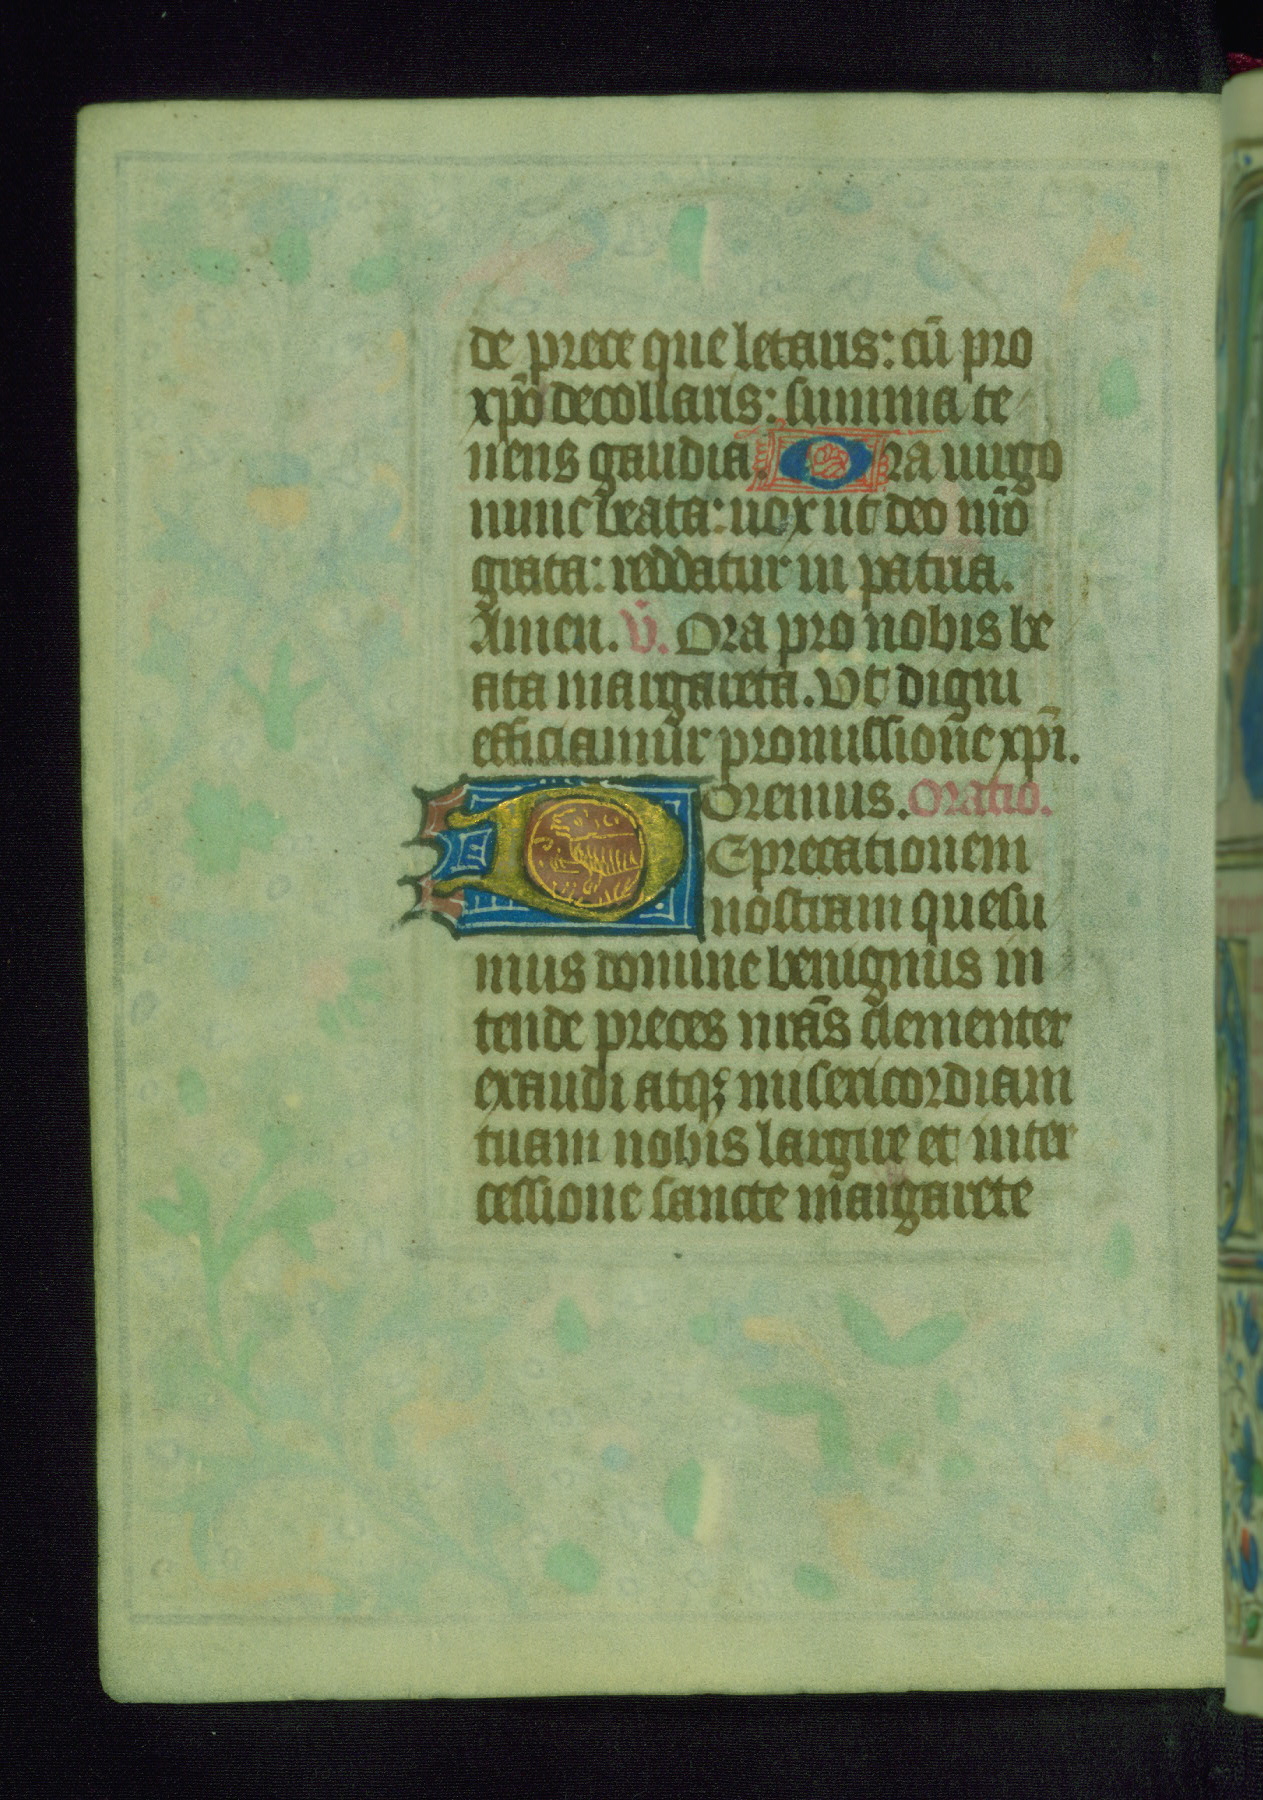 de prece que letaris: cū pro
xp̄o decollaris: summa te
nens gaudia. Ora uirgo
nunc beata: uox ut deo n̄ro
grata: reddatur in patria.
Amen. V̄. Ora pro nobis be
ata margareta. Vt digni
efficiamur promissione xp̄i.
Oremus. Oratio.
Deprecationem
nostram quesu
mus domine benignus in
tende preces nrās clementer
exaudi atqꝫ misericordiam
tuam nobis largire et inter
cessione sancte margarete